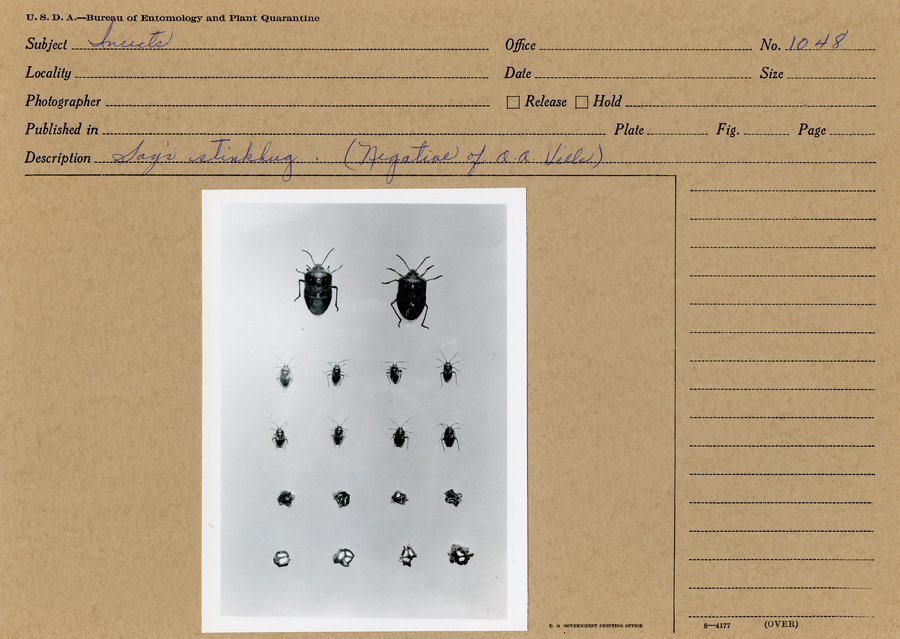 U. S. D. A.—Bureau of Entomology and Plant Quarantine
Subject Insects Office No. 1048
Locality Date Size
Photographer Release Hold
Published in Plate Fig. Page
Description Say's stinkbug. (Negative of O.A. Hills)
U. S. GOVERNMENT PRINTING OFFICE 8—4177 (OVER)